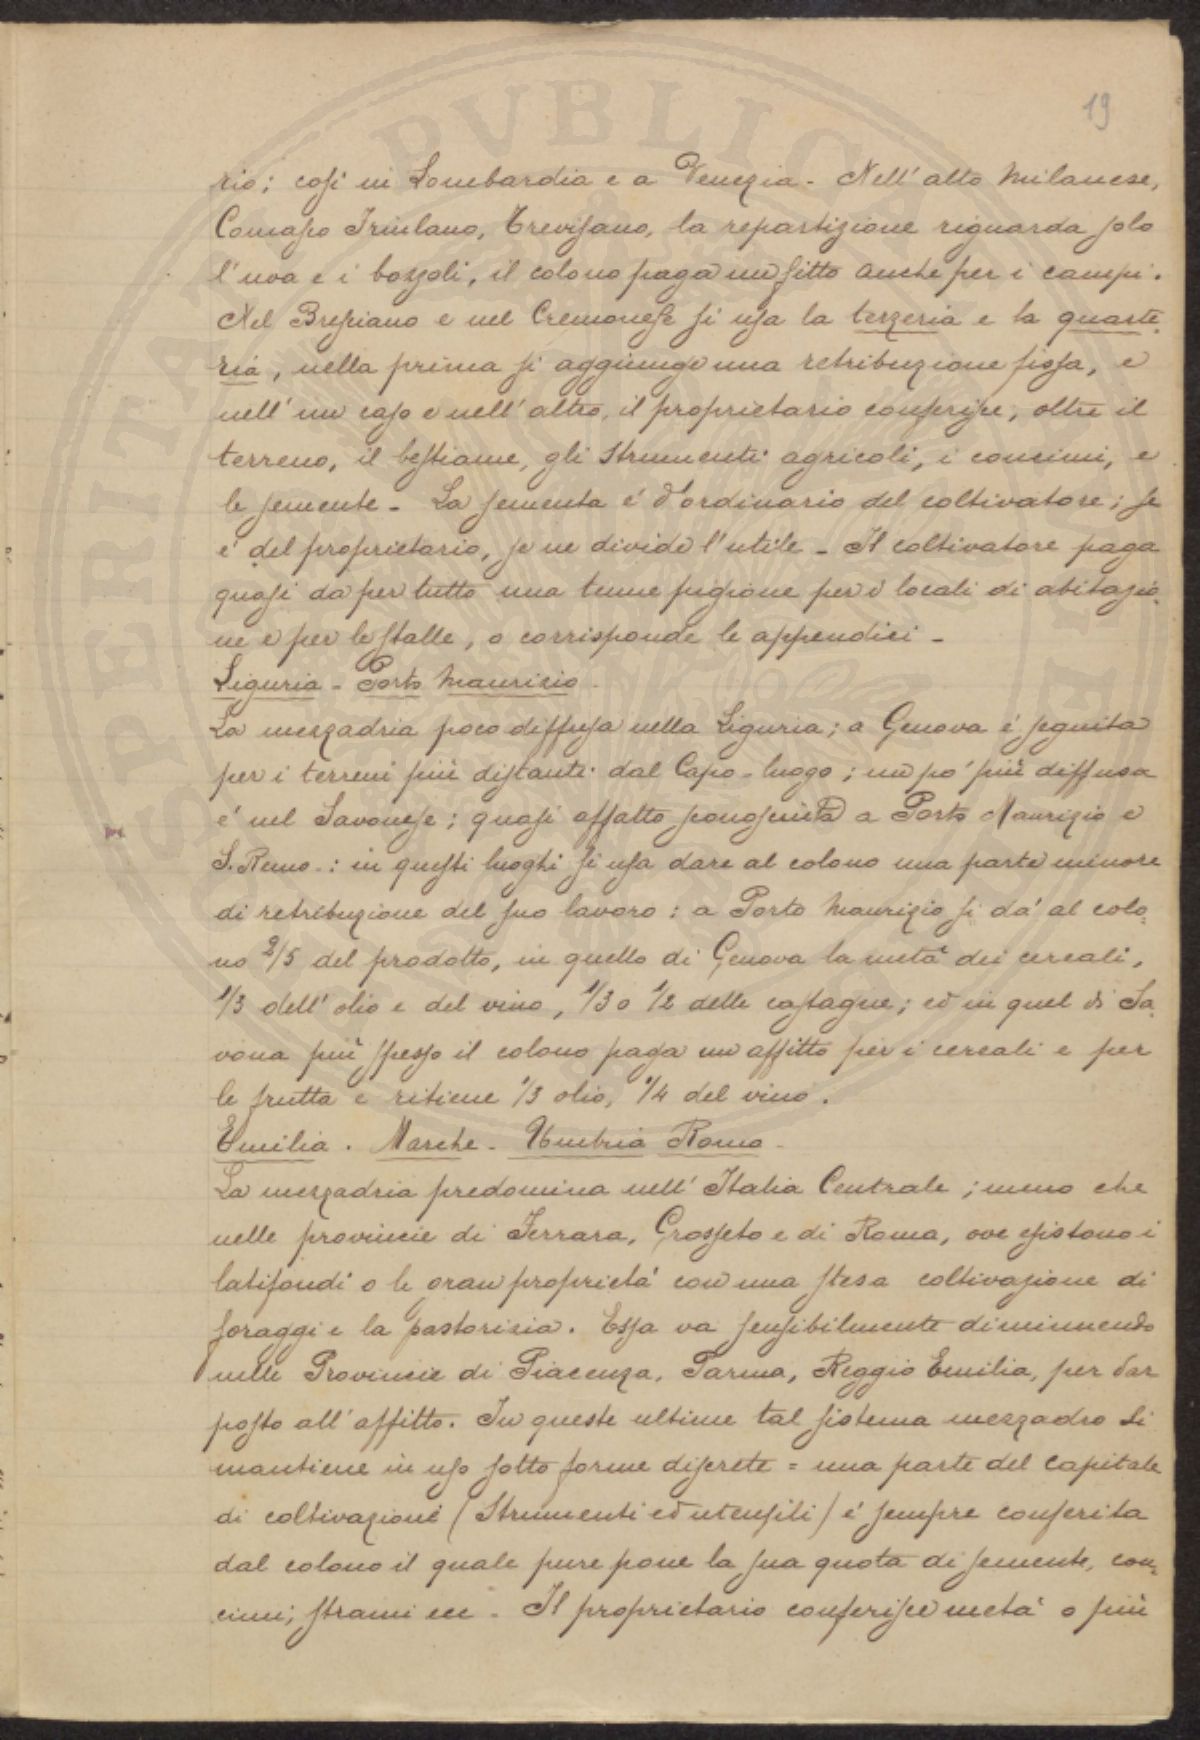 19
rio; così in Lombardia e a Venezia - Nell'alto Milanese,
Comasco Friulano, Trevisano, la repartizione riguarda solo
l'uva e i bozzoli, il colono paga un fitto anche per i campi.
Nel Bresciano e nel Cremonese si usa la terzeria e la quarte=
ria, nella prima si aggiunge una retribuzione fissa, e
nell'un caso e nell'altro, il proprietario conferisce, oltre il
terreno, il bestiame, gli strumenti agricoli, i concimi, e
le semente - La sementa è d'ordinario del coltivatore; se
è del proprietario, se ne divide l'utile - Il coltivatore paga
quasi da per tutto una tenue pigione per i locali di abitazio=
ne e per le stalle, o corrisponde le appendici -
Liguria - Porto Maurizio -
La mezzadria poco diffusa nella Liguria; a Genova è seguita
per i terreni più distanti dal Capo-luogo; un po' più diffusa
è nel Savonese; quasi affatto sconosciuta a Porto Maurizio e
S. Remo -: in questi luoghi si usa dare al colono una parte minore
di retribuzione del suo lavoro: a Porto Maurizio si dà al colo=
no 2/5 del prodotto, in quello di Genova la metà dei cereali,
1/3 dell'olio e del vino, 1/3 o 1/2 delle castagne; ed in quel di Sa=
vona più spesso il colono paga un affitto per i cereali e per
le frutta e ritiene 1/3 olio, 1/4 del vino.
Emilia. Marche - Umbria Roma -
La mezzadria predomina nell'Italia Centrale; meno che
nelle provincie di Ferrara, Grosseto e di Roma, ove esistono i
latifondi o le gran proprietà con una stesa coltivazione di
foraggi e la pastorizia. Essa va sensibilmente diminuendo
nelle Provincie di Piacenza, Parma, Reggio Emilia, per dar
posto all'affitto. In queste ultime tal sistema mezzadro si
mantiene in uso sotto forme discrete = una parte del capitale
di coltivazione (strumenti ed utensili) è sempre conferita
dal colono il quale pure pone la sua quota di semente, con=
cimi, strami ecc - Il proprietario conferisce metà o più
SPERITAT PVBLICA